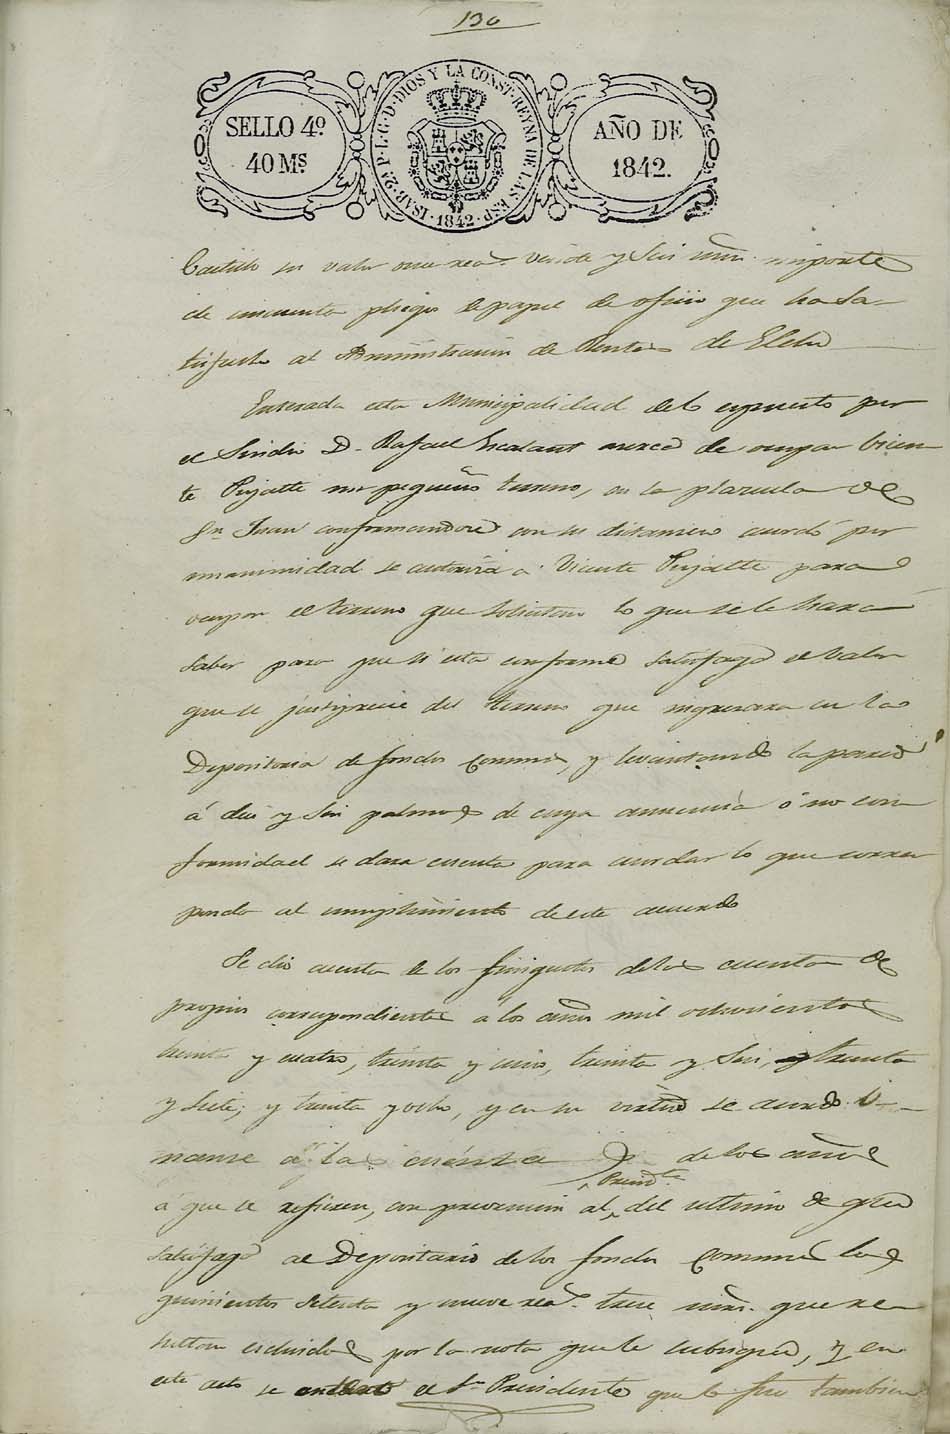 130
SELLO 4º
40 Ms.
ISAB. 2ª P. L. G. D. DIOS Y LA CONST. REYNA DE LAS ESP. 1842
AÑO DE
1842.
Castillo su valor once rea.s veinte y seis mrs. importe
de cincuenta pliegos de papel de oficio que ha sa-
tisfecho al Administracion de Rentas de Elche
Enterada esta Municipalidad de lo espuesto por
el Sindico D. Rafael acerca de ocupar Vicen-
te Pujalte un pequeño terreno, en la plazuela de
Sn. Juan conformandose con su dictamen acordó por
unanimidad se autoriza a Vicente Pujalte para
ocupar el terreno que solicita lo que se le hara
saber para que si esta conforme satisfaga el valor
que se justiprecie del terreno que ingresara en la
Depositaria de fondos comunes, y levantando la pared
á diez y seis palmos de cuya anuencia ó no con
formidad se dara cuenta para acordar lo que corres
ponda al cumplimiento de este acuerdo
Se dio cuenta de los finiquitos de las cuentas de
propios correspondientes á los años mil ochocientos
treinta y cuatro, treinta y cinco, treinta y seis, y treinta
y siete, y treinta y ocho, y en su virtud se acordó u-
nanse a la cuenta de los años
á que se refieren, con prevencion al, del ultimo de que
Presid.te
satisfaga al Depositario de los fondos comunes los
quinientos setenta y nueve rea.s trece mrs. que re
sultan escluidos por la nota que le subsigue, y en
este acto se el Sr. Presidente que lo fue tambien